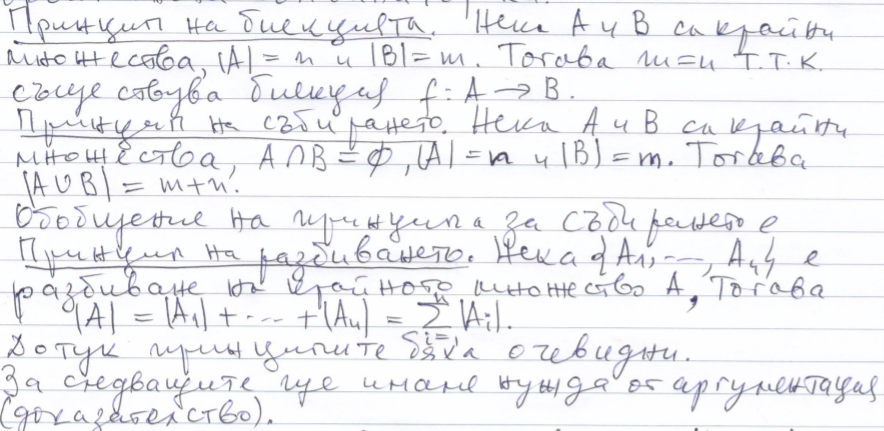 Принцип на биекцията. Нека A и B са крайни
множества, |A| = n и |B| = m. Тогава m=n т.т.к.
съществува биекция f: A → B.
Принцип на събирането. Нека A и B са крайни
множества, A∩B = ϕ, |A| = n и |B| = m. Тогава
|A∪B| = m+n.
Обобщение на принципа за събирането е
Принцип на разбиването. Нека {A₁, ..., Aₙ} е
разбиване на крайното множество A, Тогава
|A| = |A₁| + ... + |Aₙ| = ∑ᵢ₌₁ⁿ |Aᵢ|.
Дотук принципите бяха очевидни.
За следващите ще имаме нужда от аргументация
(доказателство).